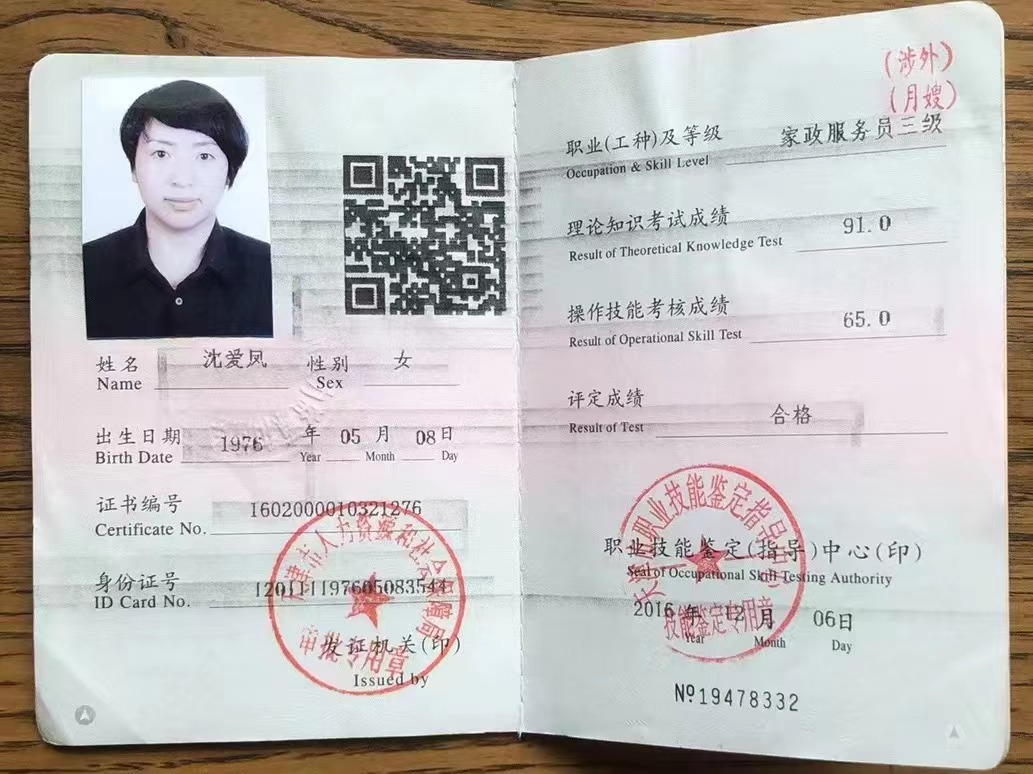 姓名 沈爱凤 性别 女
Name Sex
出生日期 1976 年 05 月 08 日
Birth Date Year Month Day
证书编号 1602000010321276
Certificate No.
身份证号 120111197605083544
ID Card No.
天津市人力资源和社会保障局
审批专用章
发证机关(印)
Issued by
(涉外)
(月嫂)
职业(工种)及等级 家政服务员三级
Occupation & Skill Level
理论知识考试成绩 91.0
Result of Theoretical Knowledge Test
操作技能考核成绩 65.0
Result of Operational Skill Test
评定成绩 合格
Result of Test
职业技能鉴定指导
技能鉴定专用章
职业技能鉴定(指导)中心(印)
Seal of Occupational Skill Testing Authority
2016 年 12 月 06 日
Year Month Day
№19478332